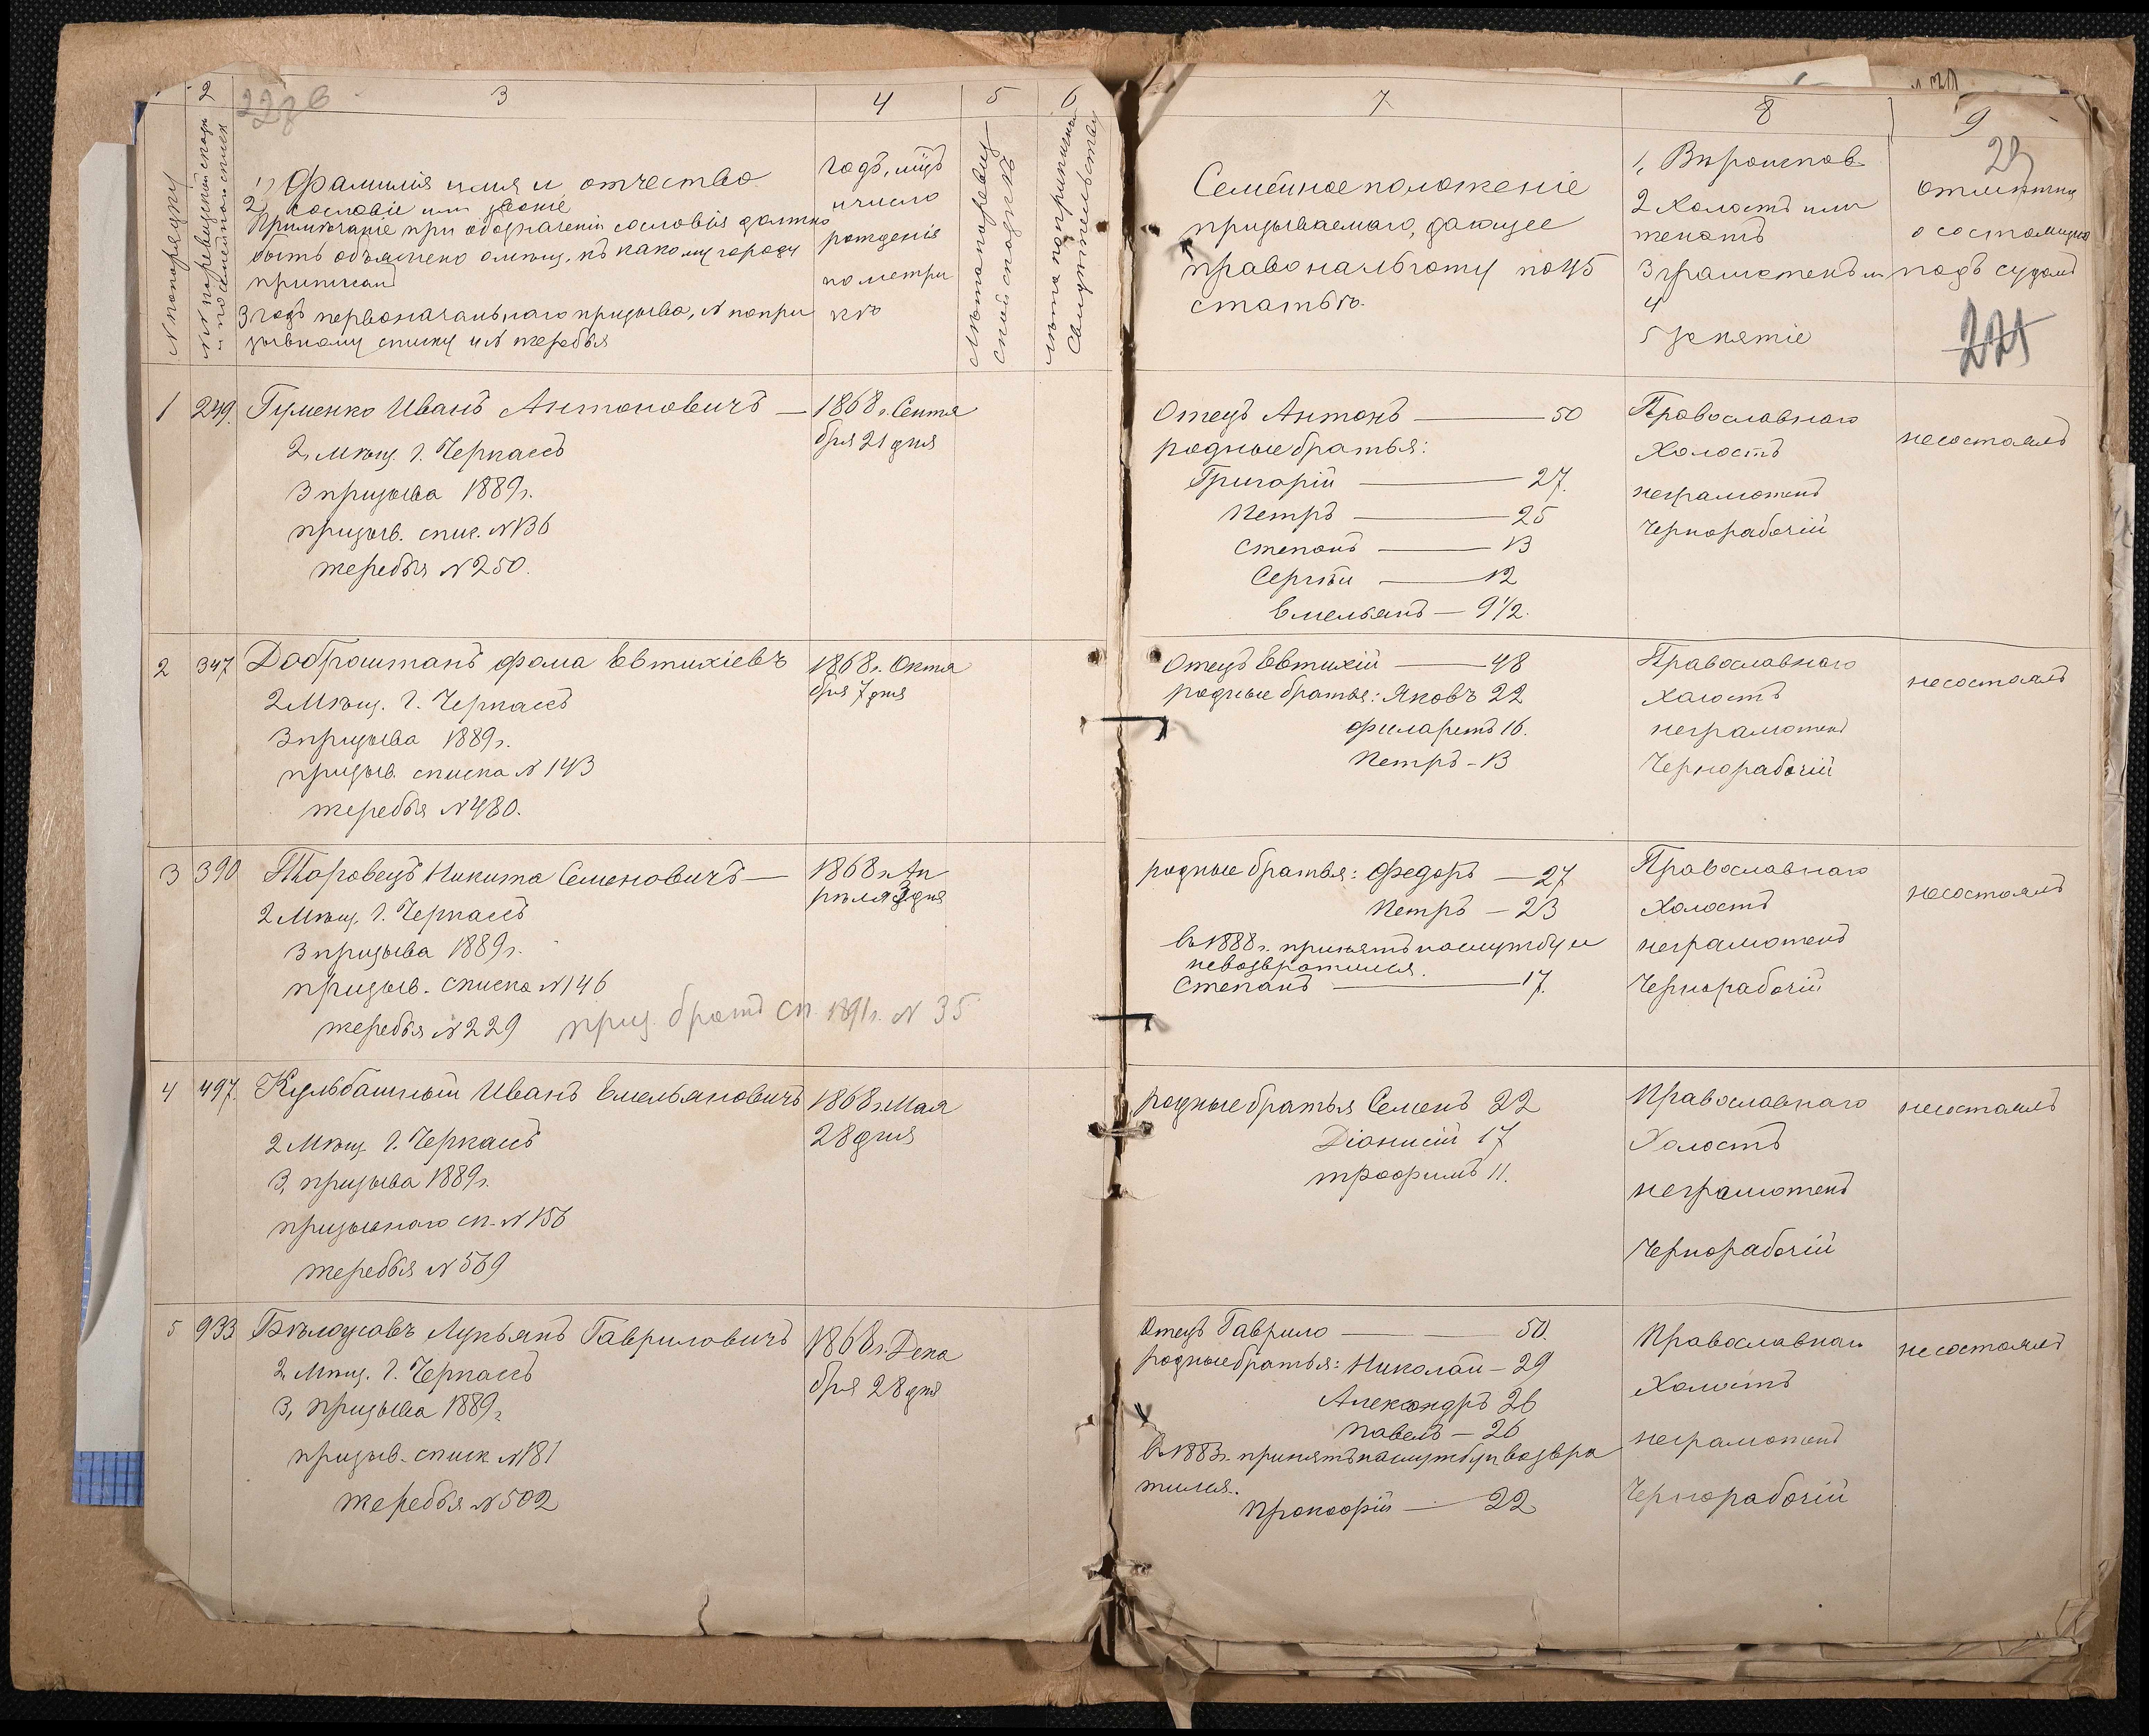 2
3
4
5
6
7
8
9
№ по порядку
1, Фамилія имя и отчество
2, сословіе или званіе
Примѣчаніе при обозначеніи сословія должно
быть объяснено о мѣщ. къ какому городу
приписанъ
3 годъ первоначальнаго призыва, № по при
зывному списку и № жеребья
годъ, мцъ
и число
рожденія
по метри
кѣ
Семейное положеніе
призываемаго, дающее
право на льготу по 45
статьѣ.
1, Вѣроисповѣ
2 Холостъ или
женатъ
3 грамотенъ
4
5 Занятіе
29
отмѣтки
о состоящихъ
подъ судомъ
221
1
249.
Гуменко Иванъ Антоновичъ —
2, Мѣщ. г. Черкассъ
3 призыва 1889 г.
призыв. спис. № 136
жеребья № 250.
1868 г. Сентя
бря 21 дня
Отецъ Антонъ — 50
родные братья:
Григорій — 27.
Петръ — 25
Степанъ — 13
Сергѣй — 12
Емельянъ — 9 1/2.
Православнаго
Холостъ
неграмотенъ
Чернорабочій
несостоялъ
2
347
Доброштанъ Фома Евтихіевъ
2 Мѣщ. г. Черкассъ
3 призыва 1889 г.
призыв. списка № 143
жеребья № 480.
1868 г. Октя
бря 7 дня
Отецъ Евтихій — 48
родные братья: Яковъ 22
Филаретъ 16.
Петръ - 13
Православнаго
холостъ
неграмотенъ
Чернорабочій
несостоялъ
3
390
Таровецъ Никита Семеновичъ —
2 Мѣщ. г. Черкассъ
3 призыва 1889 г.
призыв. списка № 146
жеребья № 229 приз. братъ сп. 1891 г. № 35
1868 г. Ап
рѣля 3 дня
родные братья: Федоръ — 27
Петръ — 23
въ 1888 г. принятъ на службу и
невозвратился.
Степанъ — 17.
Православнаго
Холостъ
неграмотенъ
Чернорабочій
несостоялъ
4
497.
Кульбашный Иванъ Емельяновичъ
2 Мѣщ. г. Черкассъ
3, призыва 1889 г.
призывнаго сп. № 156
жеребья № 569
1868 г. Мая
28 дня
родные братья Семенъ 22
Діонисій 17
Трофимъ 11.
Православнаго
Холостъ
неграмотенъ
Чернорабочій
несостоялъ
5
933
Бѣлоусовъ Лукьянъ Гавриловичъ
2, Мѣщ. г. Черкассъ
3, призыва 1889 г
призыв. списк. № 181
жеребья № 502
1868 г. Дека
бря 28 дня
Отецъ Гаврило — 50.
родные братья: Николай — 29
Александръ 26
Павелъ — 26
въ 1883 г. принятъ на службу и возвра
тился.
Прокофій — 22
Православнаго
Холостъ
неграмотенъ
Чернорабочій
несостоялъ